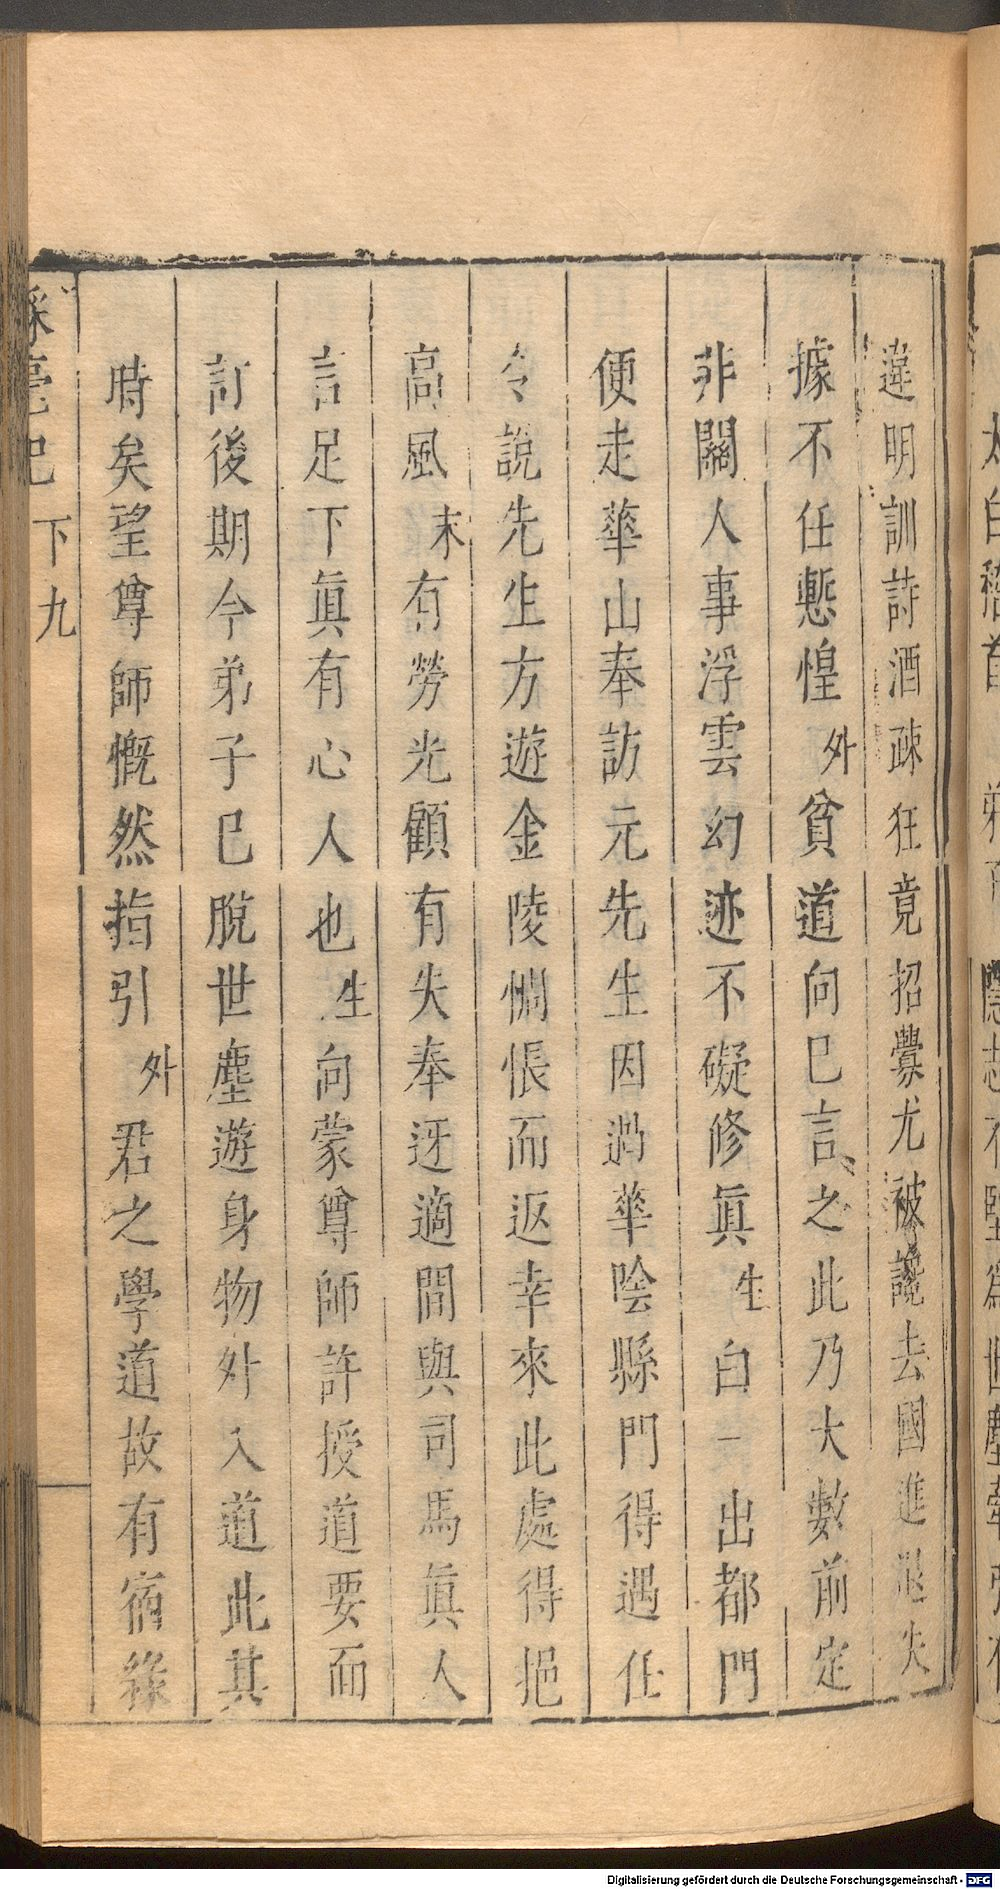 違明訓詩酒疎狂竟招釁尤被讒去國進退失
據不任慙惶外貧道向已言之此乃大數前定
非關人事浮雲幻迹不礙修眞生白一出都門
便走華山奉訪元先生因過華陰縣門得遇任
令說先生方遊金陵惆悵而返幸來此處得挹
高風末有勞光顧有失奉迓適間與司馬眞人
言足下眞有心人也生向蒙尊師許授道要而
訂後期今弟子已脫世塵遊身物外入道此其
時矣望尊師慨然指引外君之學道故有宿緣
綵毫記 下 九
太白稽首
Digitalisierung gefördert durch die Deutsche Forschungsgemeinschaft - DFG